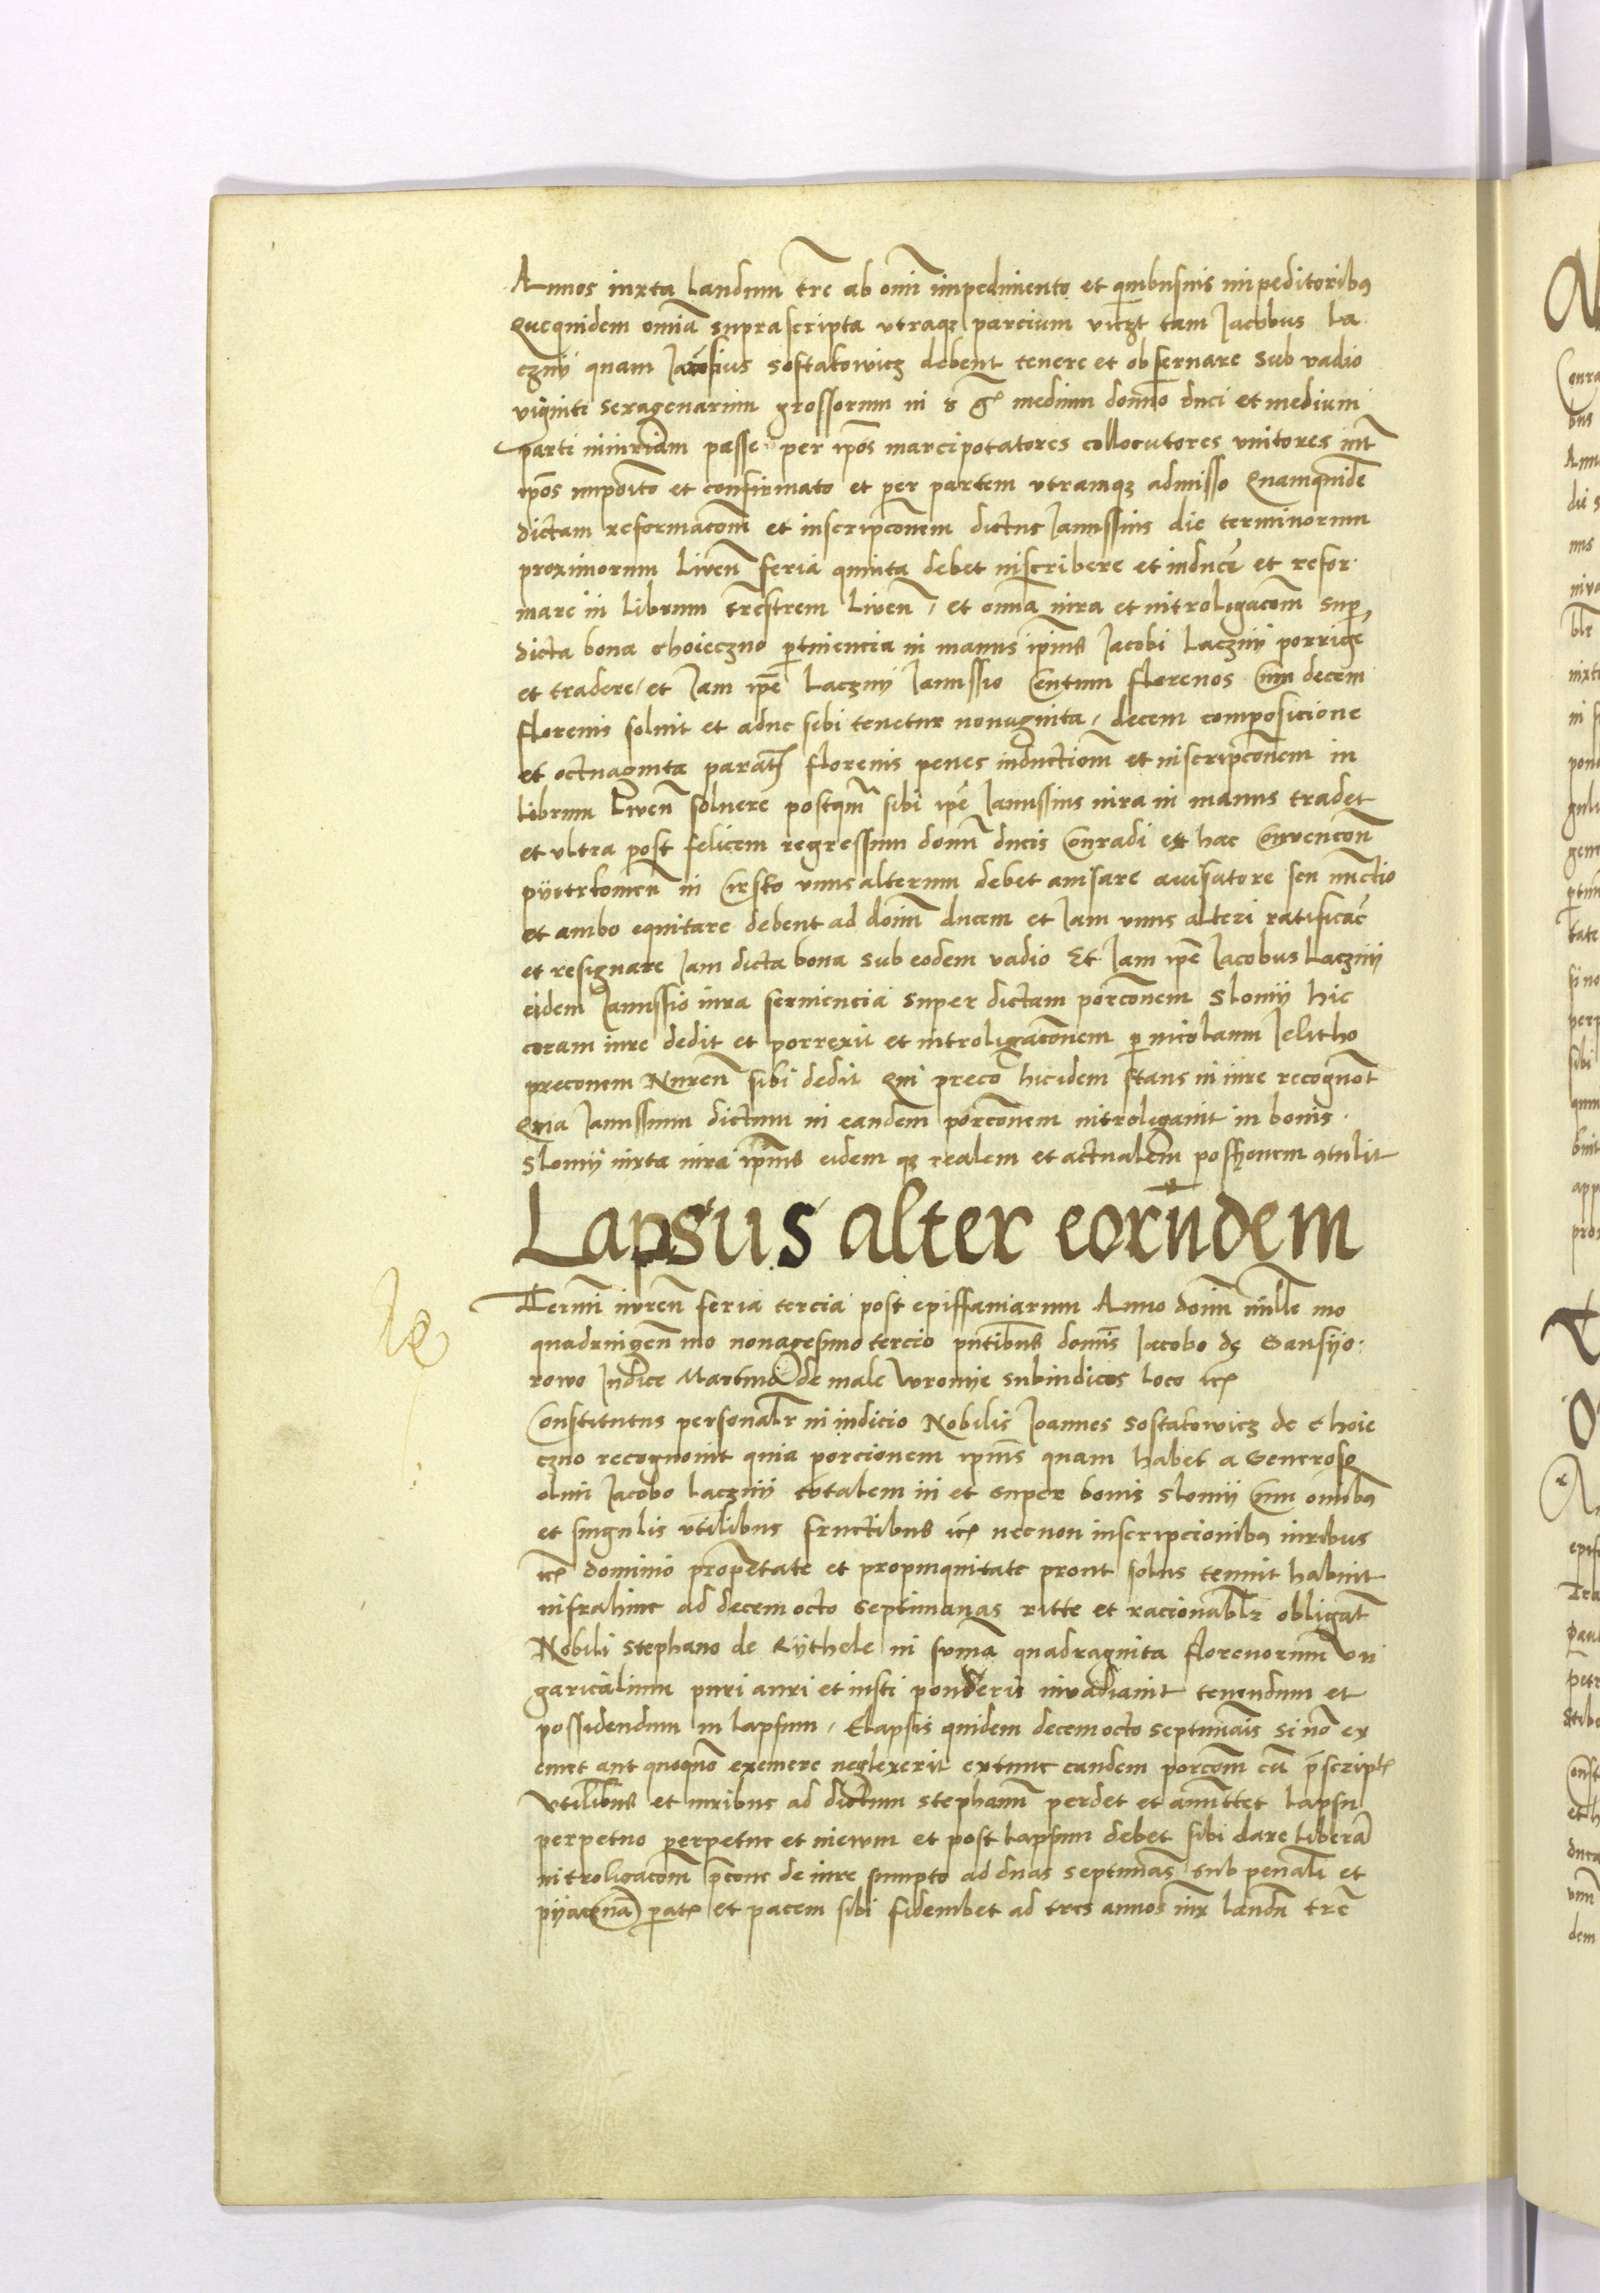 Annos iuxta laudum trē ab om̄i impedimento et quibusuis impeditoribus
Quequidem omīa suprascripta vtraque parcium viczt tam Jacobus La
cznij quam Janusius sostakowicz debent tenere et obseruare sub vadio
viginti sexagenarum grossorum in s gr medium domīo duci et medium
parti iniuriam passe per ip̄os marcipotatores collocutores vnitores int̄
ip̄os imp̄oito et confirmato et per partem vtramque admisso Quamquidē
dictam reformacōm et inscripcōnem dictus Janussius die terminorum
proximorum Liwen̄ feria quinta debet inscribere et inducē et refor
mare in librum trēstrem Liwen̄, et omīa iura et introligacōm sup
dicta bona choieczno ptinencia in manus ipīus Jacobi Lacznij porrigē
et tradere, et Jam ip̄e Lacznij Janussio Centum florenos Cum decem
florenis soluit et adhuc sibi tenetur nonaginta, decem composicione
et octuaginta parat̄ florenis penes inductiom̄ et inscripcōnem in
librum Liwen̄ soluere postqm̄ sibi ip̄e Janussius iura in manus tradet
et vltra post felicem regressum domī ducis Conradi ex hac Conuencōn
pyotrkowen̄ in Cirsko vnus alterum debet auisare auisatore seu nuctio
et ambo equitare debent ad domī ducem et Jam vnus alteri ratificaē
et resignare Jam dicta bona sub eodem vadio Et Jam ip̄e Jacobus Lacznij
eidem Janussio iura seruiencia super dictam porcōnem slomij hic
coram iure dedit et porrexit et introligacōnem p nicolaum Jelitho
preconem Nuren̄ sibi dedit Qui preco hicidem stans in iure recognoīt
Quia Janussium dictum in eandem porcōnem introligauit in bonis
slomij iuxta iura ipīus eidem que realem et actualem possionem 9tulit
Lapsus alter eorundem
Termī nuren̄ feria tercia post epiffaniarum Anno domī mille mo
quadringen̄ mo nonagesimo tercio pn̄tibus domīs Jacobo de Gansijo
rowo Judice Martino de male wromije subiudicis loco icz
Constitutus personalr̄ in iudicio Nobilis Joannes sostakowicz de choie
czno recognouit quia porcionem ipīus quam habet a Generoso
olim Jacobo Lacznij totalem in et super bonis slomij Cum omībus
et singulis vtilibus fructibus icz necnon inscripcionibus iuribus
icz dominio propētate et propinquitate prout solus tenuit habuit
infrahinc ad decemocto septimanas ritte et racionablr̄ obligat̄
Nobili Stephano de Kythele in suma quadraginta florenorum vn
garicalium puri auri et iusti ponderis inuadiauit tenendum et
possidendum in lapsum, Elapsis quidem decemocto septimaīs si no ex
emet aut quoquo exemere neglexerit extunc eandem porcōm cū p̄script
vtilibus et iuribus ad dictum Stephanū perdet et amittet lapsu
perpetuo perpetue et in ewm et post lapsum debet sibi dare liberā
introligacōm p̄cone de iure sumpto ad duas septimāas sub penali et
pyacznā pat et pacem sibi fidembet ad tres annos iux laudū trē